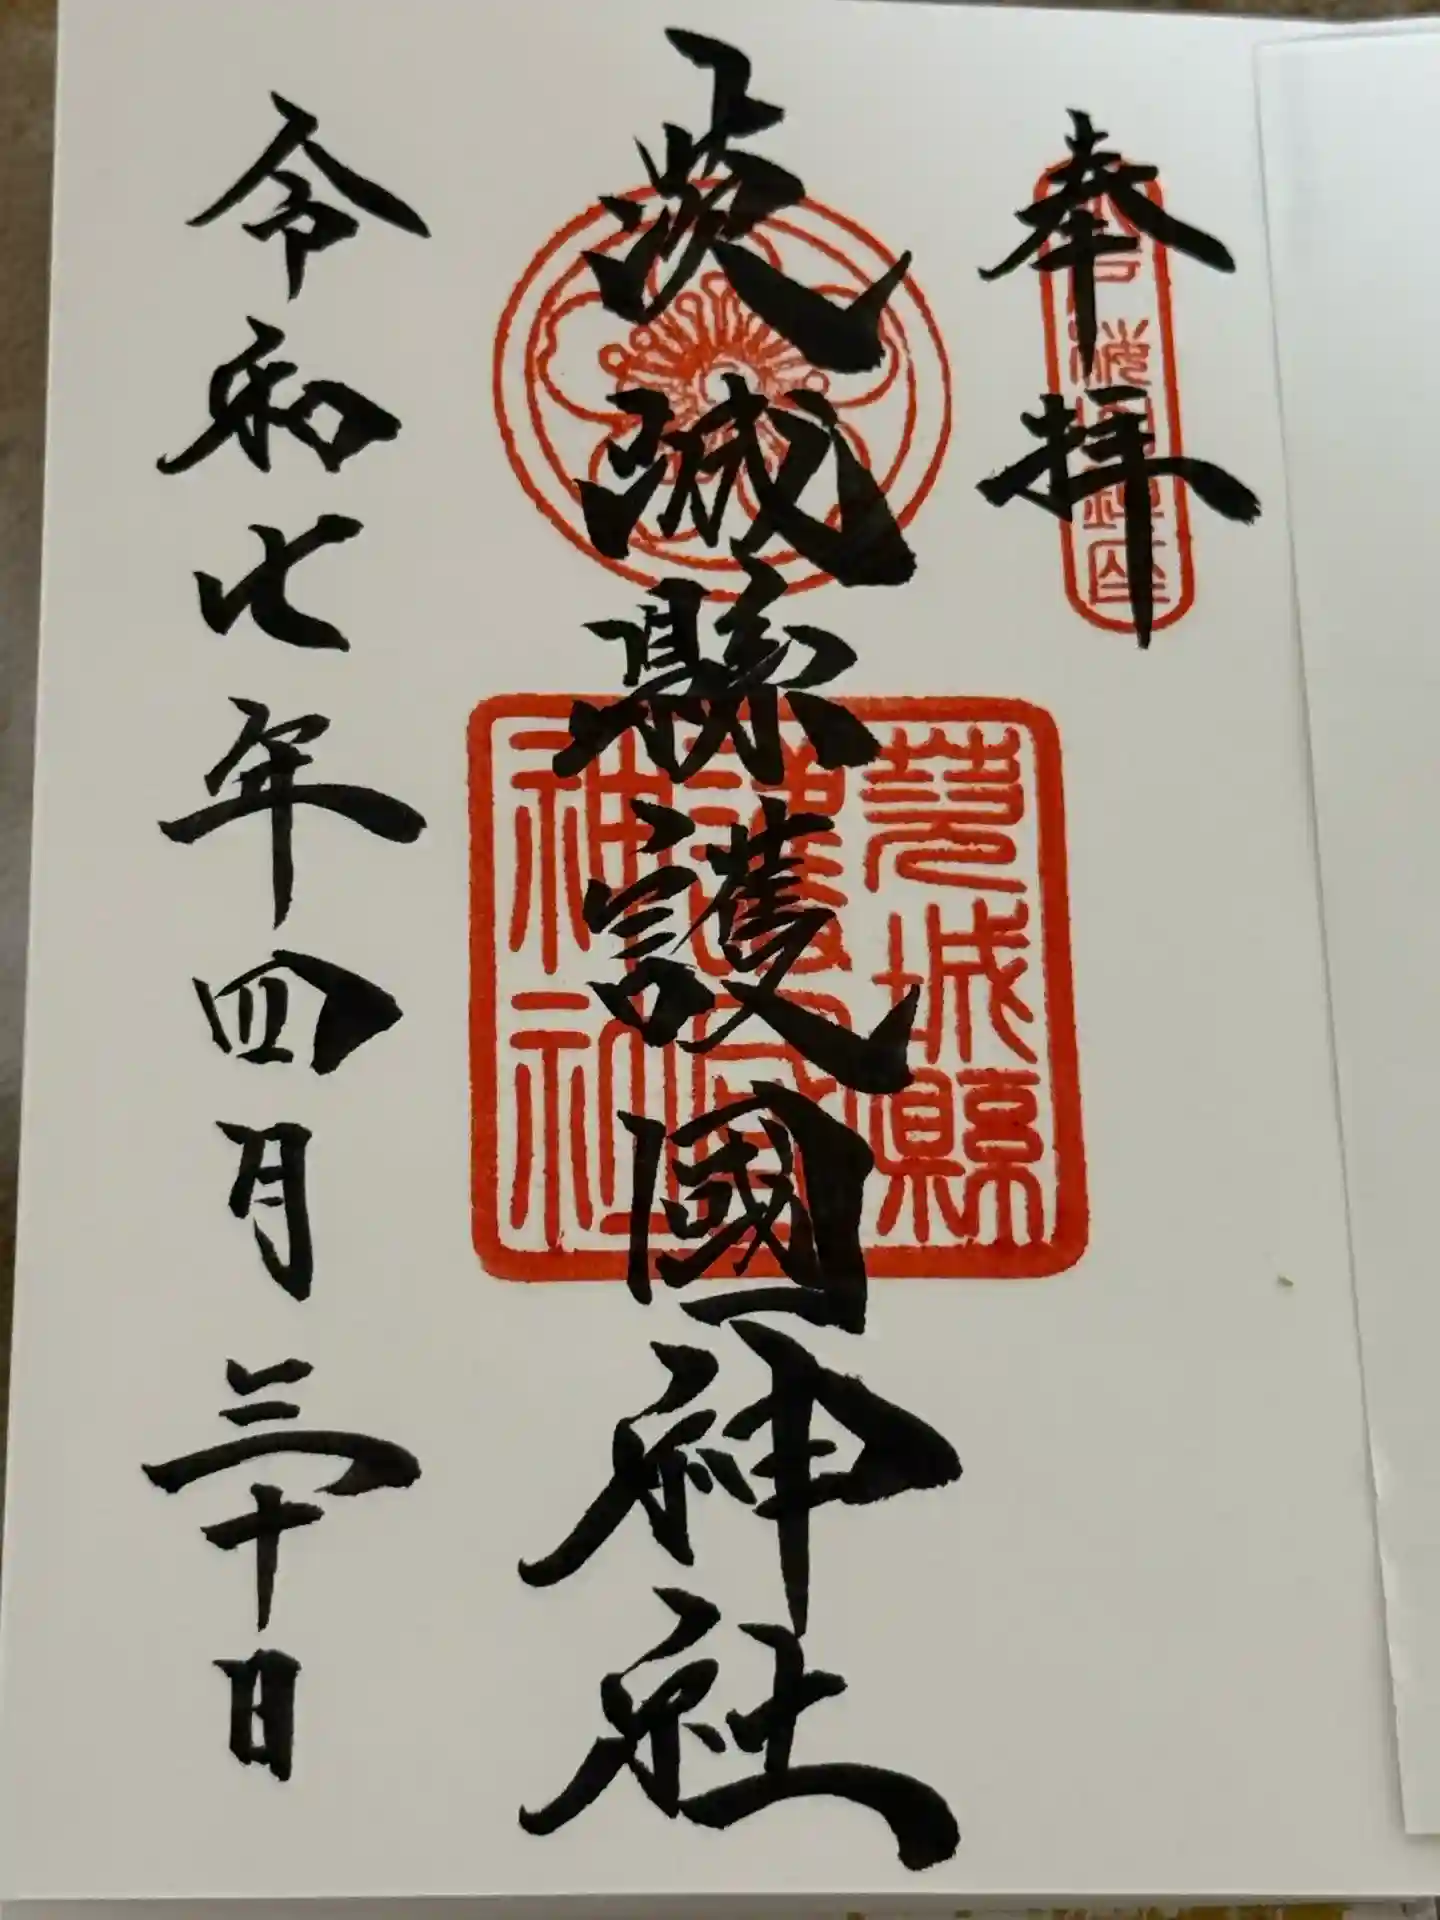 奉拝
茨城縣護國神社
令和七年四月三十日
茨城縣
護國
神社